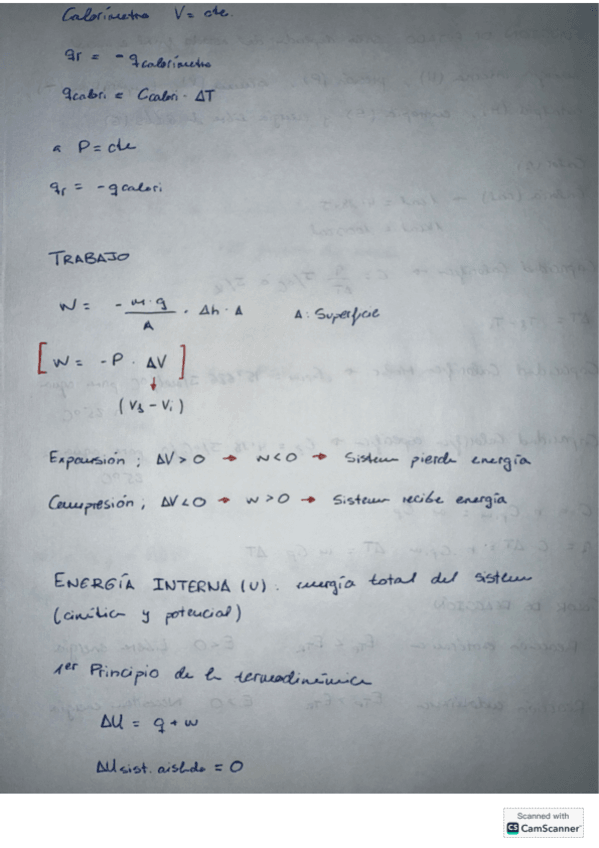 Calorímetro V = cte.
qr = - qcalorímetro
qcalori = Ccalori · ΔT
a P = cte
qr = - qcalori
TRABAJO
W = - m·g / A · Δh · A A: Superficie
[W = -P · ΔV]
(Vf - Vi)
Expansión; ΔV > 0 → W < 0 → Sistema pierde energía
Compresión; ΔV < 0 → W > 0 → Sistema recibe energía
ENERGÍA INTERNA (U): energía total del sistema
(cinética y potencial)
1er Principio de la termodinámica
ΔU = q + w
ΔU sist. aislado = 0
Scanned with
CS CamScanner